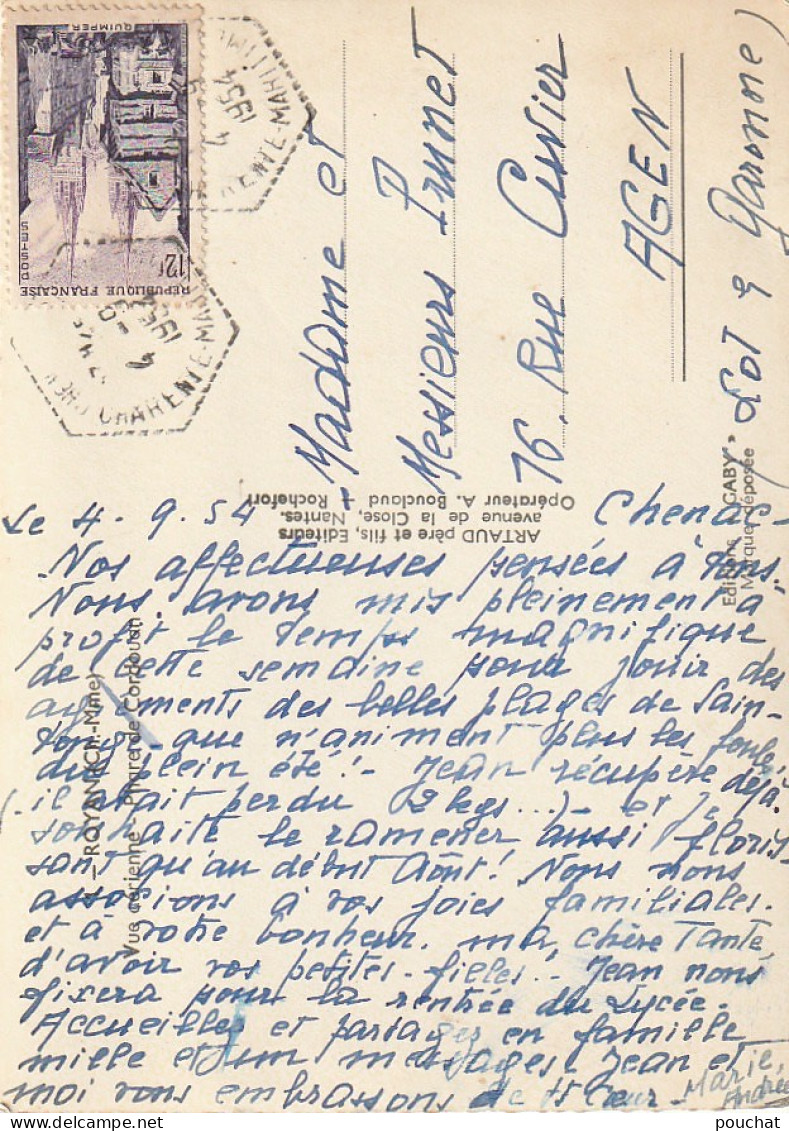 QUIMPER
POSTES
12f
RÉPUBLIQUE FRANÇAISE
CHARENTE-MARITIME
4 -9
1954
CHARENTE-MARITIME
4 -9
Madame et
Messieurs Prunet
76. Rue Cuvier
AGEN
(Lot & Garonne)
Editions « GABY »
Marque déposée
ARTAUD père et fils, Editeurs
avenue de la Close, Nantes.
Opérateur A. Bouclaud - Rochefort
ROYAN (Ch.-Mme)
Vue aérienne - Phare de Cordouan
Le 4. 9. 54 Chenac-
Nos affectueuses pensées à tous.
Nous avons mis pleinement à
profit le temps magnifique
de cette semaine pour jouir des
agréments des belles plages de Sain-
tonge - que n'animent plus les foules
du plein été! - Jean récupère déjà.
(il avait perdu 2 kgs...) - et je
souhaite le ramener aussi floris-
sant qu'au début Août! Nous nous
associons à vos joies familiales.
et à votre bonheur, ma chère Tante,
d'avoir vos petites-filles. - Jean nous
fixera pour la rentrée du Lycée.
Accueillez et partagez en famille
mille et un messages. Jean et
moi vous embrassons de tt cœur - Marie-
Andrée